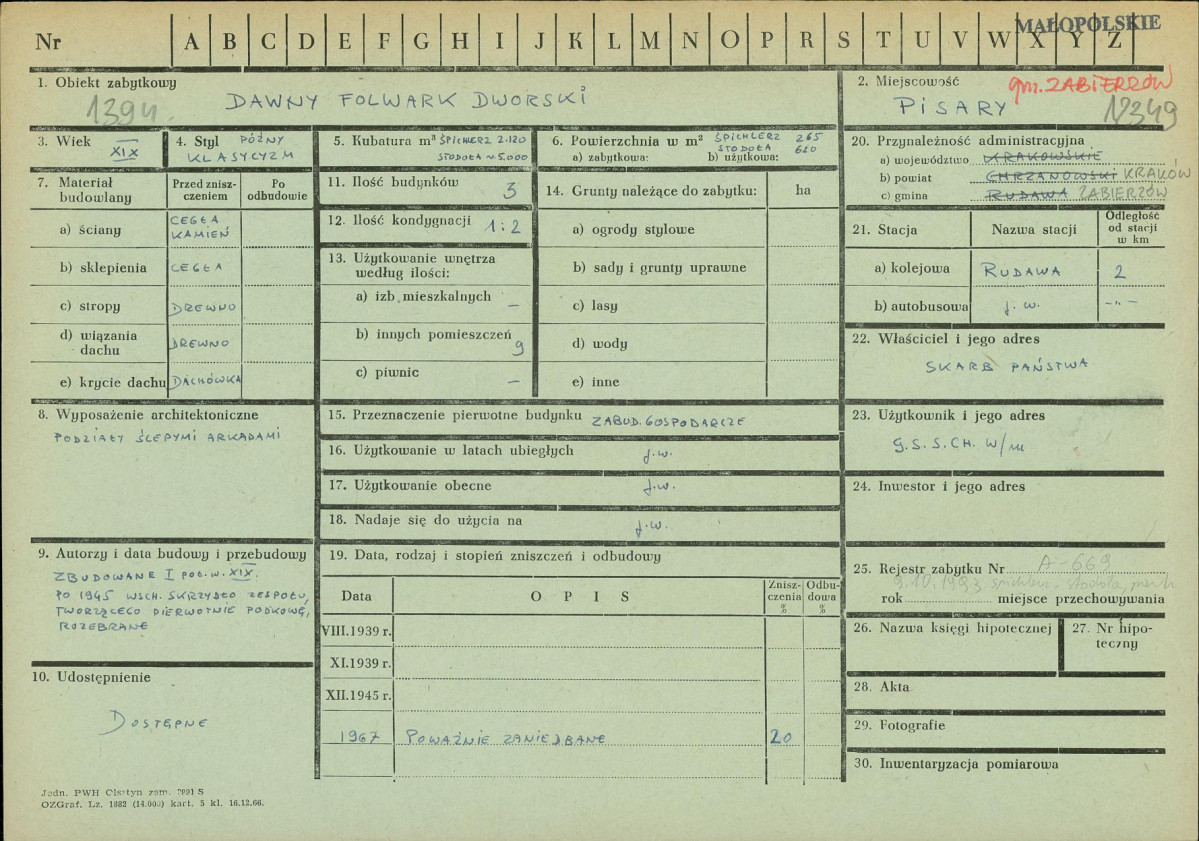 Nr A B C D E F G H I J K L M N O P R S T U V W X Y Z
MAŁOPOLSKIE
1. Obiekt zabytkowy
1394
DAWNY FOLWARK DWORSKI
2. Miejscowość
gm. ZABIERZÓW
PISARY
12349
3. Wiek
XIX
4. Styl PÓŹNY
KLASYCYZM
5. Kubatura m³ ŚPICHLERZ 2.120
STODOŁA ~ 5.000
6. Powierzchnia w m² ŚPICHLERZ 265
STODOŁA 620
a) zabytkowa: b) użytkowa:
7. Materiał budowlany
Przed zniszczeniem
Po odbudowie
a) ściany CEGŁA
KAMIEŃ
b) sklepienia CEGŁA
c) stropy DREWNO
d) wiązania dachu DREWNO
e) krycie dachu DACHÓWKA
8. Wyposażenie architektoniczne
PODZIAŁY ŚLEPYMI ARKADAMI
9. Autorzy i data budowy i przebudowy
ZBUDOWANE I POŁ. W. XIX.
PO 1945 WSCH. SKRZYDŁO ZESPOŁU,
TWORZĄCEGO PIERWOTNIE PODKOWĘ,
ROZEBRANE
10. Udostępnienie
DOSTĘPNE
11. Ilość budynków 3
12. Ilość kondygnacji 1:2
13. Użytkowanie wnętrza
według ilości:
a) izb mieszkalnych —
b) innych pomieszczeń 9
c) piwnic —
14. Grunty należące do zabytku: ha
a) ogrody stylowe
b) sady i grunty uprawne
c) lasy
d) wody
e) inne
15. Przeznaczenie pierwotne budynku ZABUD. GOSPODARCZE
16. Użytkowanie w latach ubiegłych j.w.
17. Użytkowanie obecne j.w.
18. Nadaje się do użycia na j.w.
19. Data, rodzaj i stopień zniszczeń i odbudowy
Data OPIS Zniszczenia % Odbudowa %
VIII.1939 r.
XI.1939 r.
XII.1945 r.
1967 POWAŻNIE ZANIEDBANE 20
20. Przynależność administracyjna
a) województwo KRAKOWSKIE
b) powiat CHRZANOWSKI KRAKÓW
c) gmina RUDAWA ZABIERZÓW
21. Stacja Nazwa stacji Odległość od stacji w km
a) kolejowa RUDAWA 2
b) autobusowa j. w. —"—
22. Właściciel i jego adres
SKARB PAŃSTWA
23. Użytkownik i jego adres
G.S. S.CH. W/m
24. Inwestor i jego adres
25. Rejestr zabytku Nr A-669
9.10.1993 spichlerz, stodoła, park
rok miejsce przechowywania
26. Nazwa księgi hipotecznej
27. Nr hipoteczny
28. Akta
29. Fotografie
30. Inwentaryzacja pomiarowa
Jedn. PWH Olsztyn zam. 2991 S
OZGraf. Lz. 1882 (14.000) kart. 5 kl. 16.12.66.